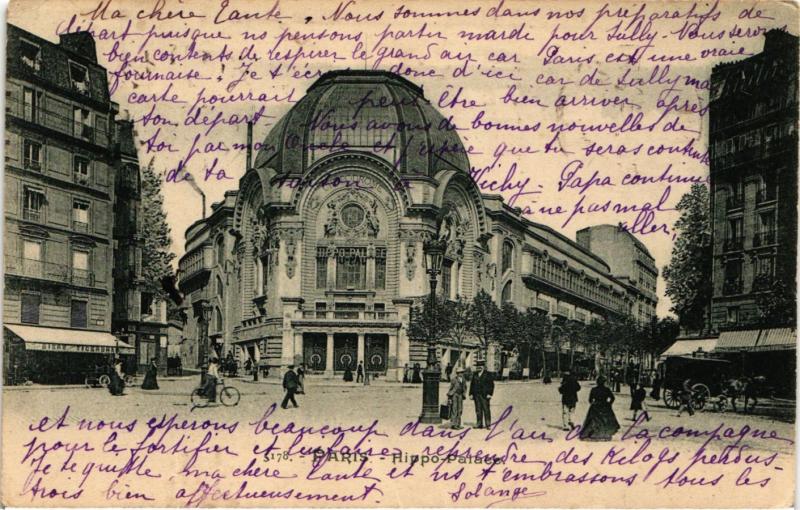 Ma chère Tante. Nous sommes dans nos préparatifs de
départ puisque ns pensons partir mardi pour Sully. Nous serons
bien contents de respirer le grand air car Paris est une vraie
fournaise. Je t'écris donc d'ici car de Sully ma
carte pourrait peut être bien arriver après
ton départ. Nous avons de bonnes nouvelles de
toi par mon Oncle et j'espère que tu seras contente
de ta saison à Vichy. Papa continue
à ne pas mal
aller,
HIPPO-PALACE
BIERE
et nous espérons beaucoup dans l'air de la campagne
pour le fortifier et lui faire reprendre des Kilogs perdus.
5178. - PARIS - Hippo-Palace
Je te quitte ma chère Tante et ns t'embrassons tous les
trois bien affectueusement. Solange